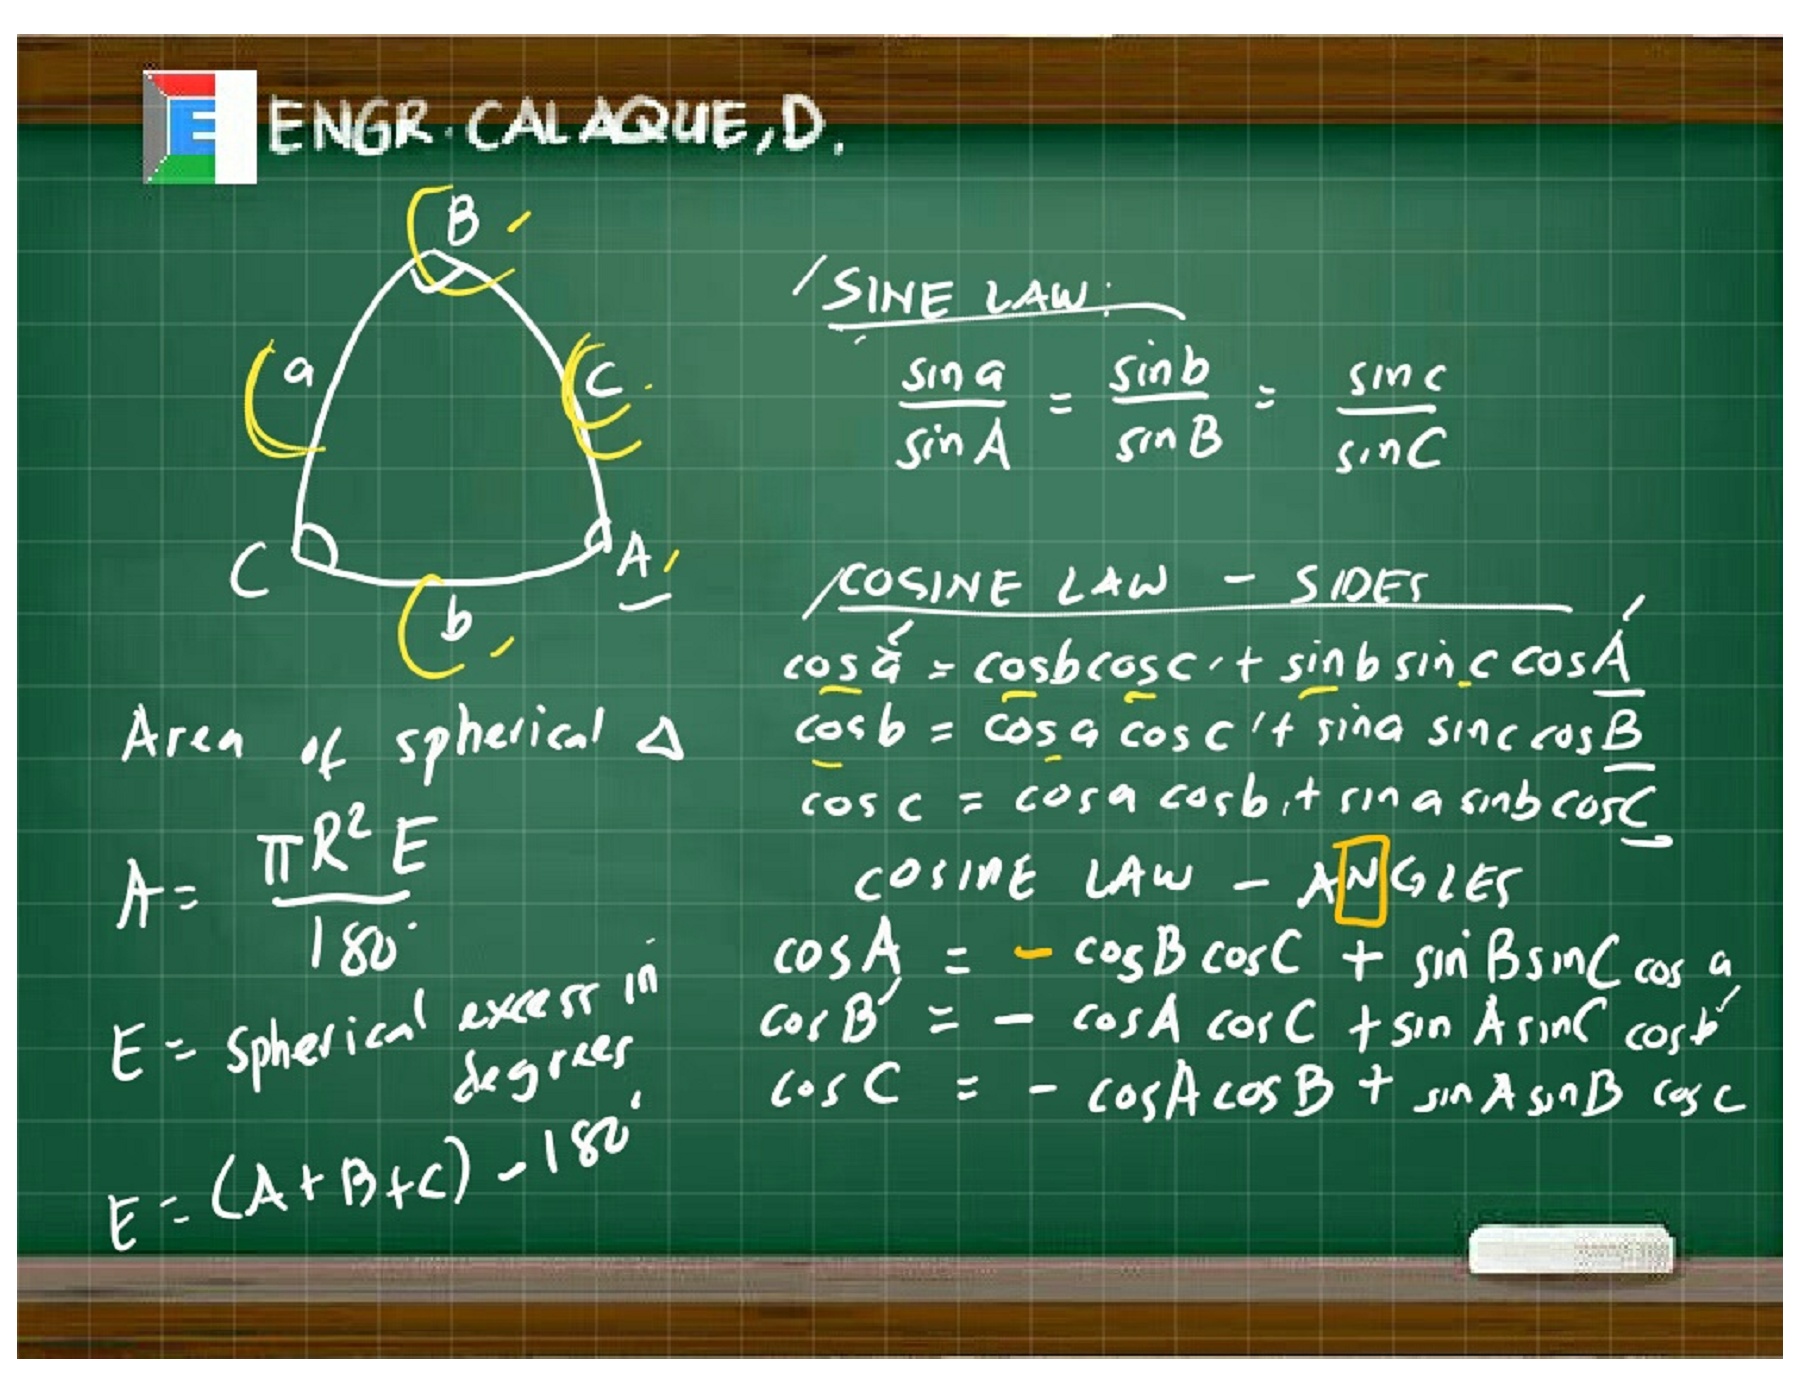 E ENGR. CALAQUE, D.
B
a
c
C
A
b
Area of spherical Δ
A = πR² E / 180°
E = spherical excess in
degrees
E = (A+B+C) - 180°
SINE LAW:
sin a / sin A = sin b / sin B = sin c / sin C
COSINE LAW - SIDES
cos a = cos b cos c + sin b sin c cos A
cos b = cos a cos c + sin a sin c cos B
cos c = cos a cos b + sin a sin b cos C
COSINE LAW - ANGLES
cos A = - cos B cos C + sin B sin C cos a
cos B = - cos A cos C + sin A sin C cos b
cos C = - cos A cos B + sin A sin B cos c